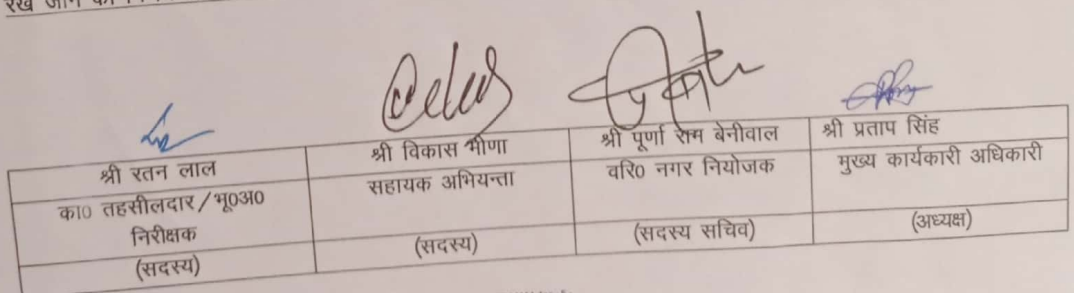 श्री रतन लाल
श्री विकास मीणा
श्री पूर्णा राम बेनीवाल
श्री प्रताप सिंह
का0 तहसीलदार/भू0अ0
निरीक्षक
सहायक अभियन्ता
वरि0 नगर नियोजक
मुख्य कार्यकारी अधिकारी
(सदस्य)
(सदस्य)
(सदस्य सचिव)
(अध्यक्ष)